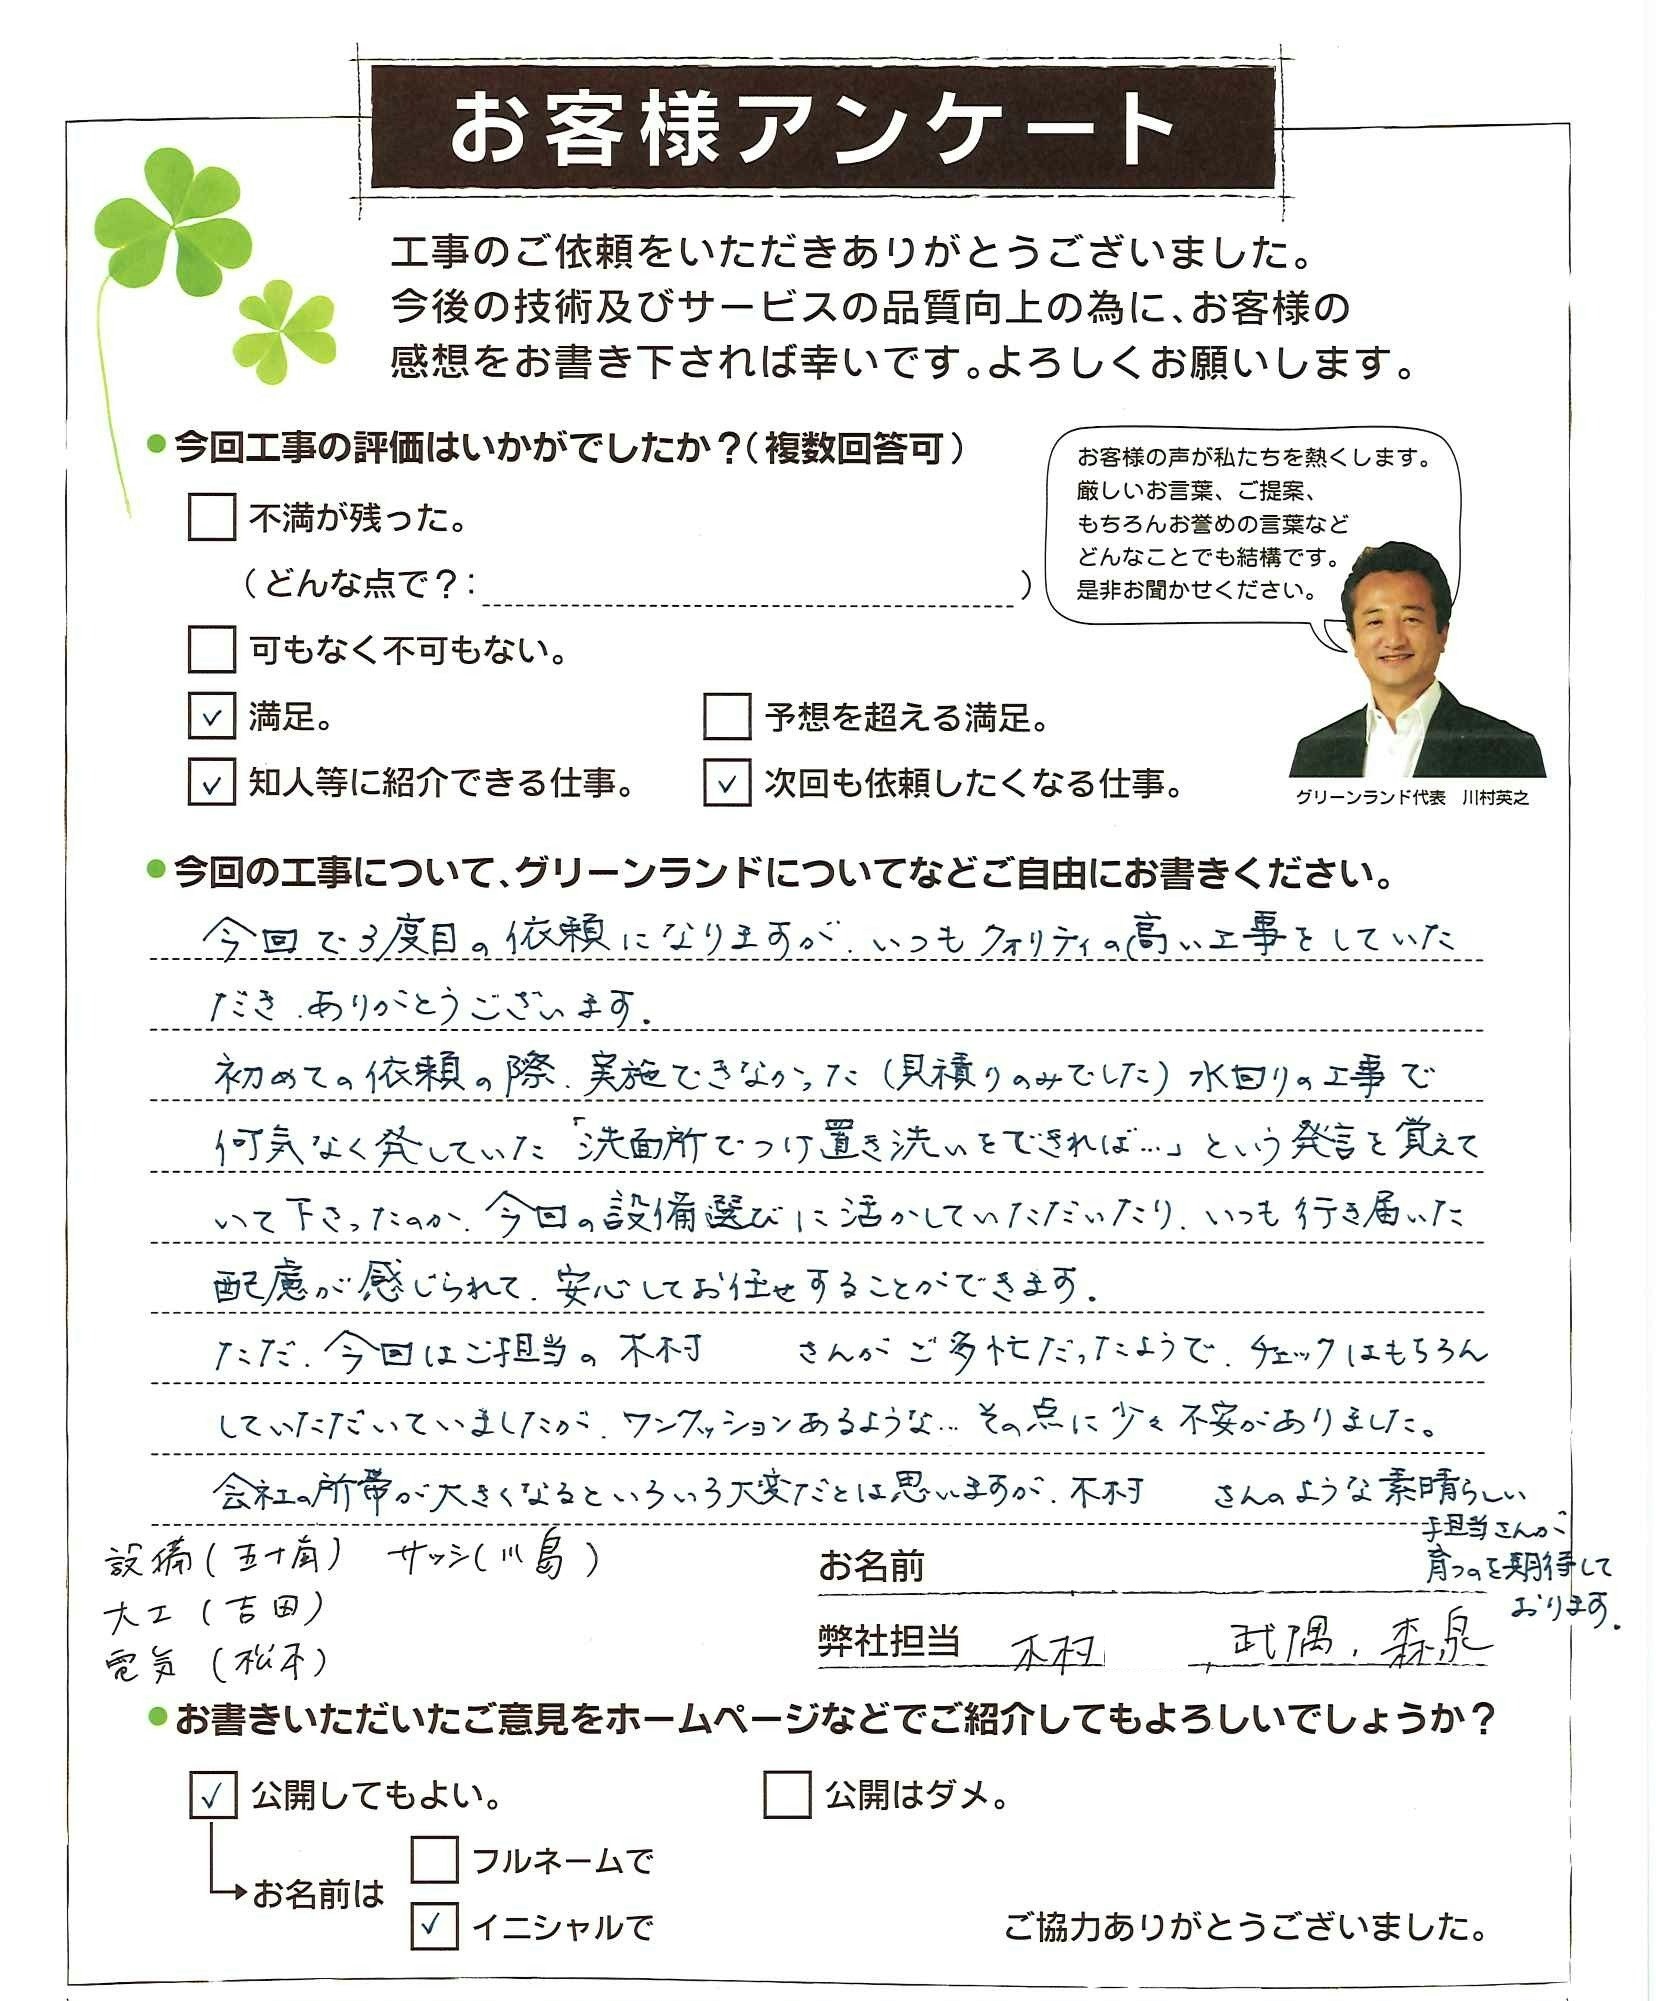 お客様アンケート
工事のご依頼をいただきありがとうございました。
今後の技術及びサービスの品質向上の為に、お客様の
感想をお書き下されば幸いです。よろしくお願いします。
●今回工事の評価はいかがでしたか？（複数回答可）
不満が残った。
（どんな点で？：　）
可もなく不可もない。
✓ 満足。
予想を超える満足。
✓ 知人等に紹介できる仕事。
✓ 次回も依頼したくなる仕事。
お客様の声が私たちを熱くします。
厳しいお言葉、ご提案、
もちろんお誉めの言葉など
どんなことでも結構です。
是非お聞かせください。
グリーンランド代表　川村英之
●今回の工事について、グリーンランドについてなどご自由にお書きください。
今回で3度目の依頼になりますが、いつもクォリティの高い工事をしていた
だき、ありがとうございます。
初めての依頼の際、実施できなかった（見積りのみでした）水回りの工事で
何気なく発していた「洗面所でつけ置き洗いをできれば…」という発言を覚えて
いて下さったのか、今回の設備選びに活かしていただいたり、いつも行き届いた
配慮が感じられて、安心してお任せすることができます。
ただ、今回はご担当の木村　さんがご多忙だったようで、チェックはもちろん
していただいていましたが、ワンクッションあるような…その点に少々不安がありました。
会社の所帯が大きくなるといろいろ大変だとは思いますが、木村　さんのような素晴らしい
担当さんが
育つのを期待して
おります。
設備（五十嵐）　サッシ（川島）
大工（吉田）
電気（松本）
お名前
弊社担当　木村　，武隅，森泉
●お書きいただいたご意見をホームページなどでご紹介してもよろしいでしょうか？
✓ 公開してもよい。
公開はダメ。
お名前は
フルネームで
✓ イニシャルで
ご協力ありがとうございました。